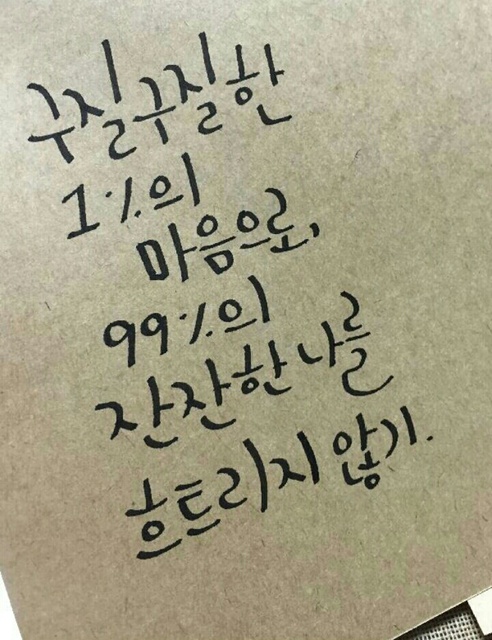 구질구질한
1%의
마음으로,
99%의
잔잔한 나를
흐트리지 않기.